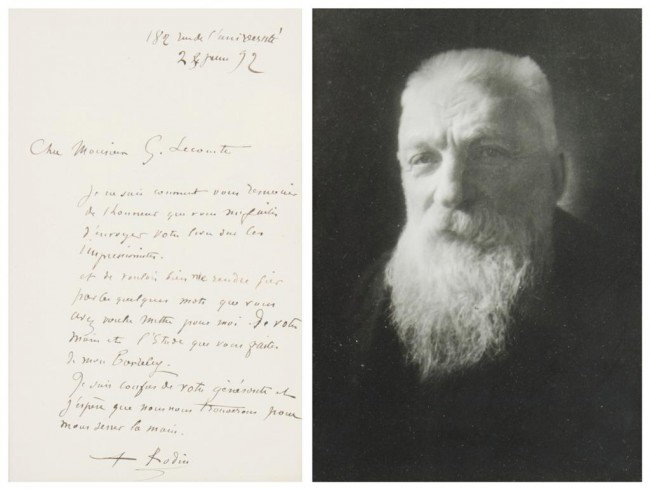 182 rue de l'université
24 juin 92
Cher Monsieur G. Lecomte
Je ne sais comment vous remercier
de l'honneur que vous me faites
d'envoyer votre livre sur les
Impressionistes.
et de vouloir bien me rendre fier
par les quelques mots que vous
avez voulu mettre pour moi. De votre
main et l'Etude que vous faites
de mon
Je suis confus de votre générosité et
j'espère que nous nous trouverons pour
nous serrer la main.
Rodin